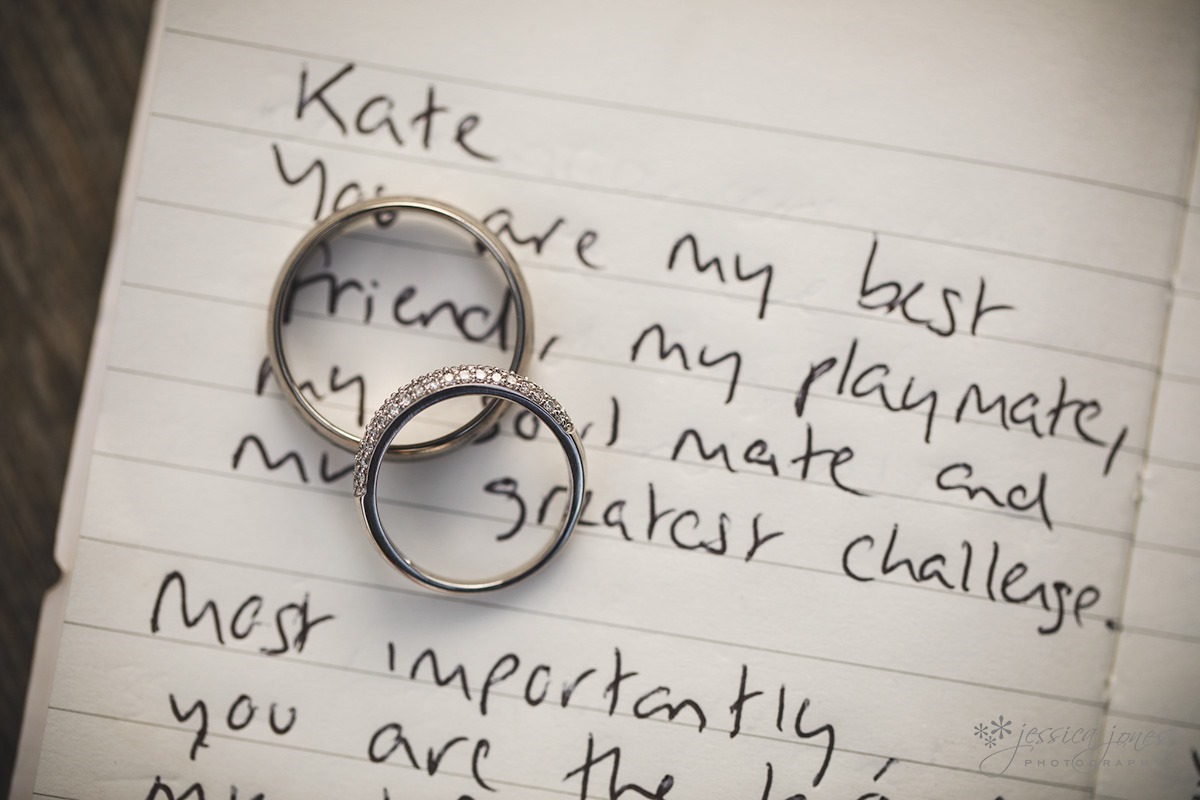 Kate
You are my best
friend, my playmate,
my soul mate and
my greatest challenge.
Most importantly,
you are the
jessica jones
PHOTOGRAPHY